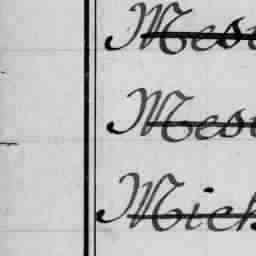 Mess
Mess
Mich